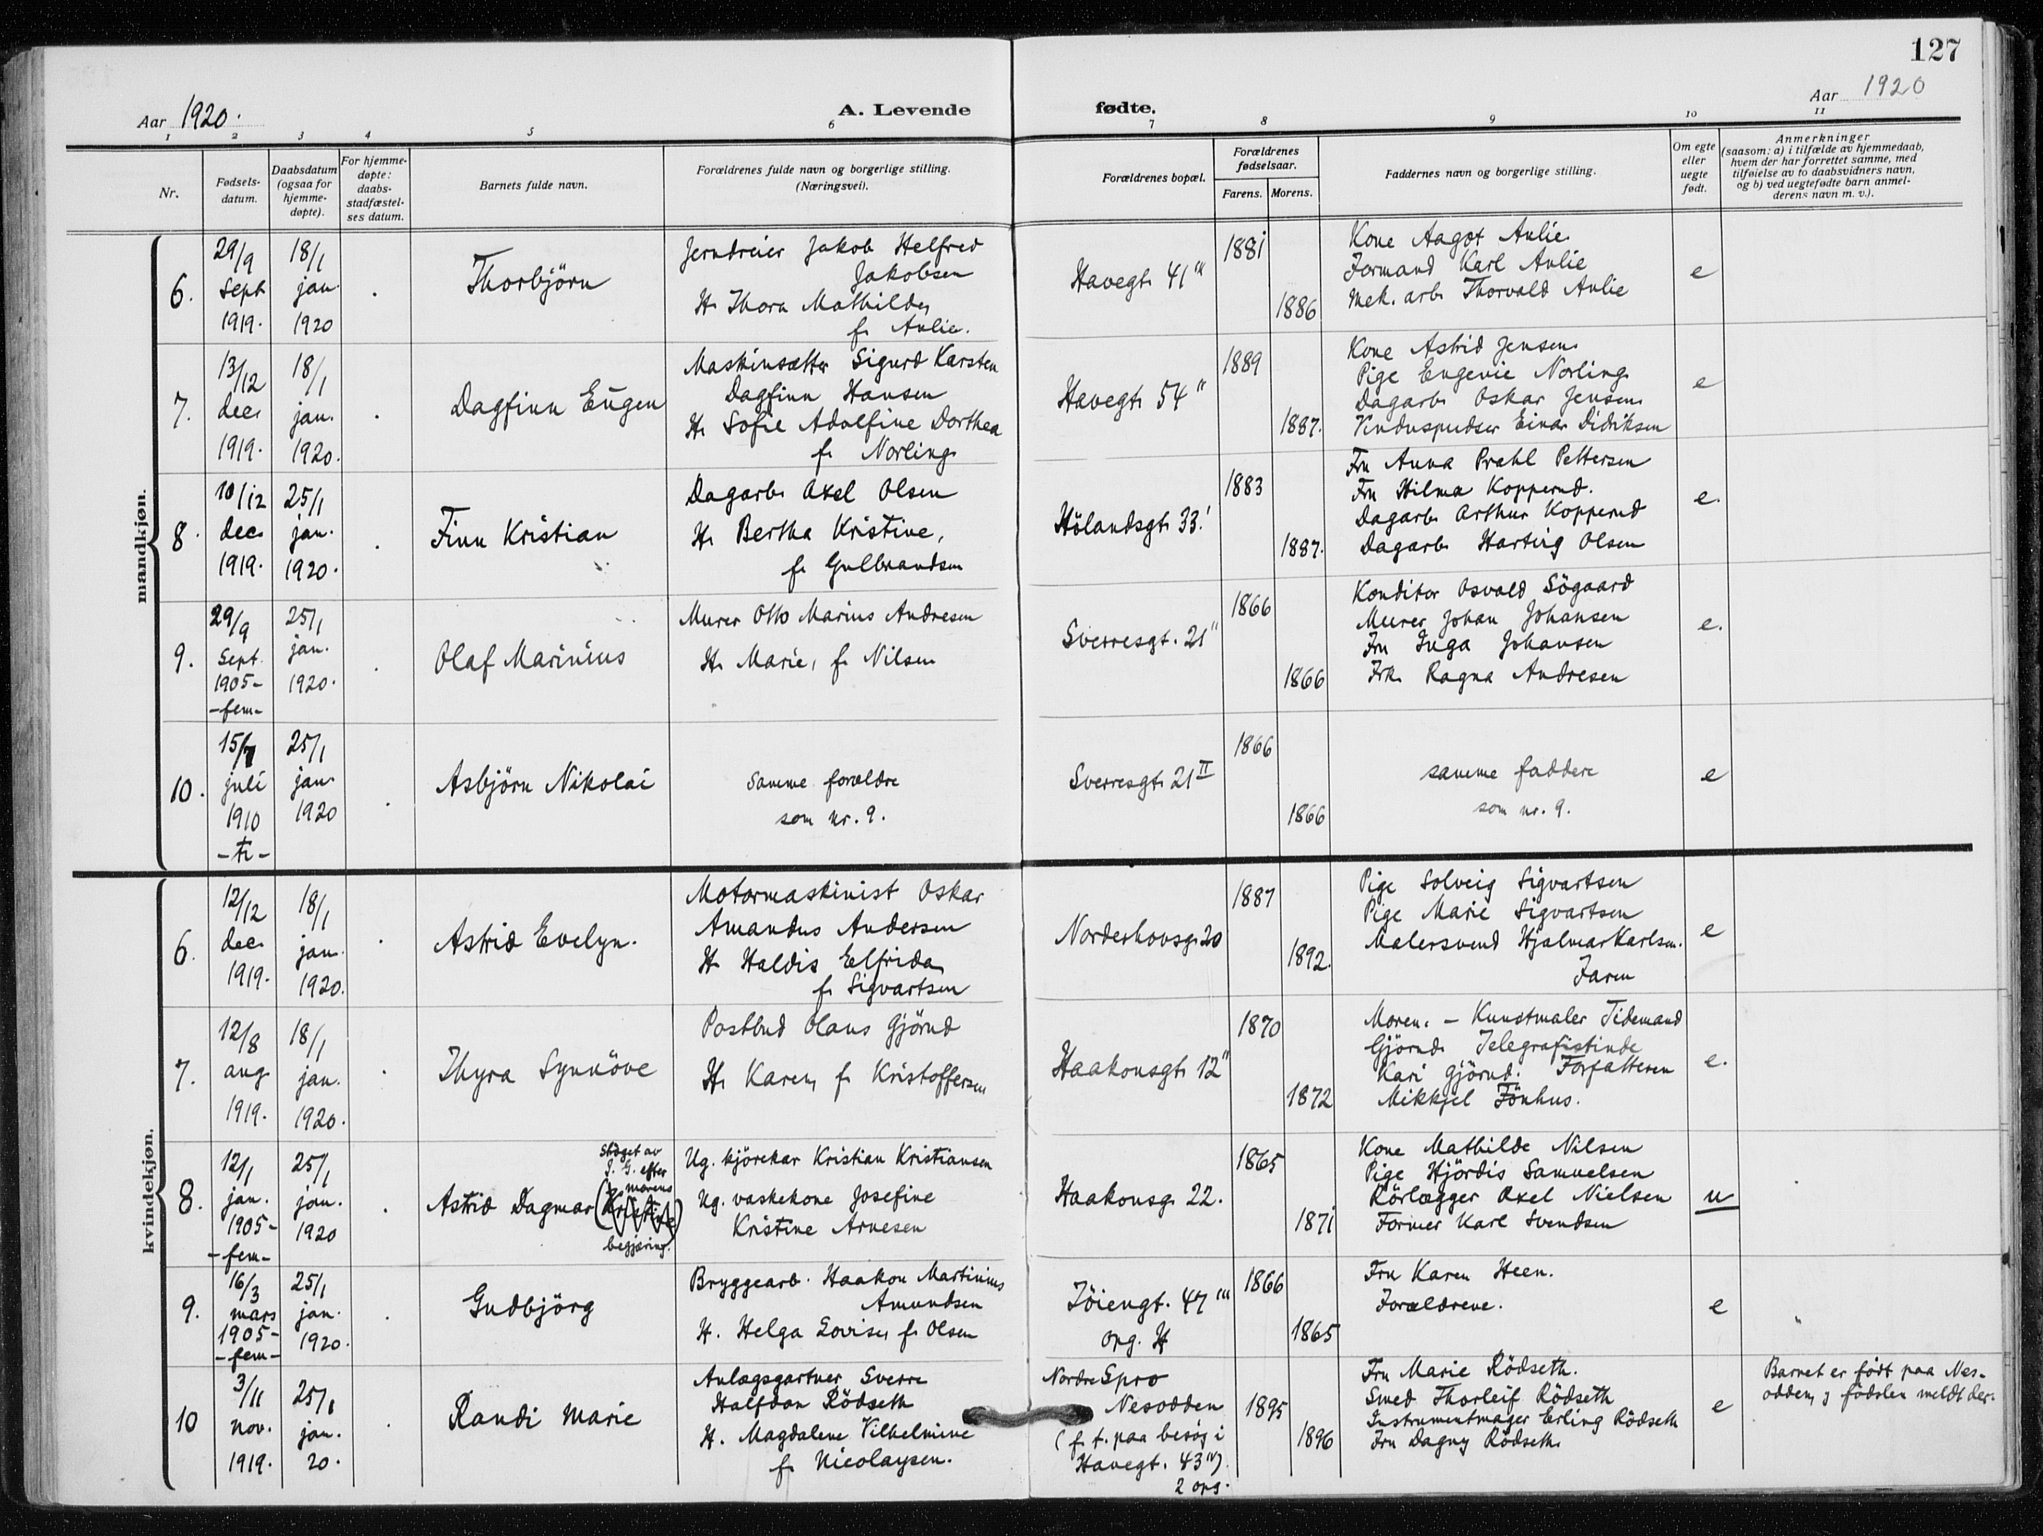 127
Aar 1920.
A. Levende fødte.
Aar 1920
1 2 3 4 5 6 7 8 9 10 11
Nr.
Fødsels-
datum.
Daabsdatum
(ogsaa for
hjemme-
døpte).
For hjemme-
døpte:
daabs-
stadfæstel-
ses datum.
Barnets fulde navn.
Forældrenes fulde navn og borgerlige stilling.
(Næringsvei).
Forældrenes bopæl.
Forældrenes
fødselsaar.
Farens. Morens.
Faddernes navn og borgerlige stilling.
Om egte
eller
uegte
født.
Anmerkninger
(saasom: a) i tilfælde av hjemmedaab,
hvem der har forrettet samme, med
tilføielse av to daabsvidners navn,
og b) ved uegtefødte barn anmel-
derens navn m. v.).
mandkjøn.
6.
29/9
sept
1919.
18/1
jan.
1920
Thorbjörn
Jerndreier Jakob Helfred
Jakobsen
H. Thora Mathilde,
f. Aulie.
Havegt. 41
1881
1886
Kone Aagot Aulie
Formand Karl Aulie
Mek. arb. Thorvald Aulie
e
7.
13/12
dec.
1919.
18/1
jan.
1920.
Dagfinn Eugen
Maskinsætter Sigurd Karsten
Dagfinn Hansen
H. Sofie Adolfine Dorthea
f. Norling
Havegt. 54"
1889
1887.
Kone Astrid Jensen
Pige Engevie Norling
Dagarb. Oskar Jensen
Vinduspudser Einar Didriksen
e
8.
10/12
dec.
1919.
25/1
jan.
1920.
Finn Kristian
Dagarb. Axel Olsen
H. Bertha Kristine,
f. Gulbrandsen
Hölandsgt. 33.'
1883
1887.
Fru Anna Prahl Pettersen
Fru Hilma Kopperud.
Dagarb. Arthur Kopperud
Dagarb. Hartvig Olsen
e.
9.
29/9
Sept.
1905-
-fem-
25/1
jan.
1920.
Olaf Marinius
Murer Otto Marius Andresen
H. Marie, f. Nilsen
Sverresgt. 21"
1866
1866
Konditor Osvald Sögaard
Murer Johan Johansen
Fru Inga Johansen
Frk. Ragna Andresen
e.
10.
15/7
juli
1910
-ti-
25/1
jan.
1920
Asbjörn Nikolai
Samme forældre
som nr. 9.
Sverresgt. 21 II
1866
1866
samme faddere
som nr. 9.
e
kvindekjøn.
6.
12/12
dec.
1919.
18/1
jan.
1920.
Astrid Evelyn.
Motormaskinist Oskar
Amandus Andersen
H. Haldis Elfrida
f. Sigvartsen
Norderhovsg. 20
1887
1892.
Pige Solveig Sigvartsen
Pige Marie Sigvartsen
Malersvend Hjalmar Karlsen.
Faren
e
7.
12/8
aug
1919.
18/1
jan.
1920.
Thyra Synnöve
Postbud Olaus Gjörud
H. Karen, f. Kristoffersen
Haakonsgt. 12"
1870
1872
Moren. - Kunstmaler Tidemand
Gjörud. Telegrafistinde
Kari Gjörud. Forfatteren
Mikkjel Fönhus.
e.
8.
12/1
jan.
1905-
-fem-
25/1
jan.
1920
Astrid Dagmar (Kristine)
Slöget av
J. G. efter
morens
begjæring.
Ug. kjörekar Kristian Kristiansen
Ug. vaskekone Josefine
Kristine Arnesen
Haakonsg. 22.
1865
1871
Kone Mathilde Nilsen
Pige Hjördis Samuelsen
Rörlægger Axel Nielsen
Former Karl Svendsen
u
9.
16/3
mars
1905-
-fem-
25/1
jan.
1920.
Gudbjörg
Bryggearb. Haakon Martinius
Amundsen
H. Helga Lovise, f. Olsen
Töiengt. 47'''
opg. H
1866
1865
Fru Karen Heen.
Forældrene.
e
10
3/11
nov.
1919.
25/1
jan.
20.
Randi Marie
Anlægsgartner Sverre
Halfdan Rödseth
H. Magdalene Vilhelmine
f. Nicolaysen.
Nordre Spro
Nesodden
(f. t. paa besög i
Havegt. 43
2 opg.
1895
1896
Fru Marie Rödseth.
Smed Thorleif Rödseth
Instrumentmager Erling Rödseth
Fru Dagny Rödseth
e
Barnet er födt paa Nes-
odden, j födslen meldt der.